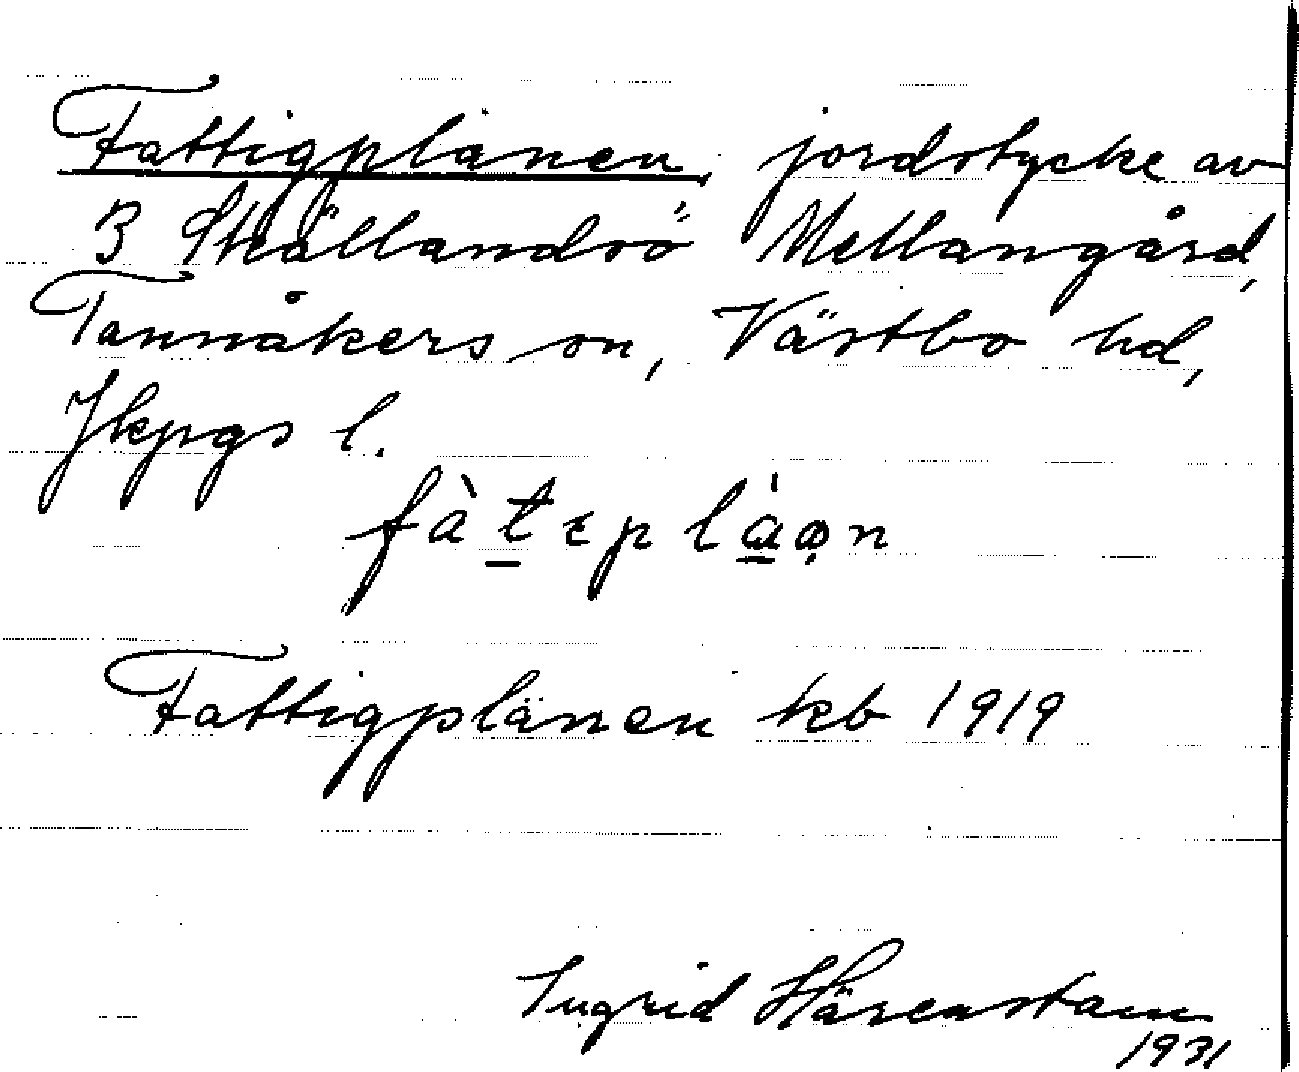 Fattigplänen, jordstycke av
3 Skällandsö Mellangård,
Tannåkers sn, Västbo hd,
Jkpgs l.
fàtɛplàən
Fattigplänen kb 1919
Ingrid Härenstam
1931